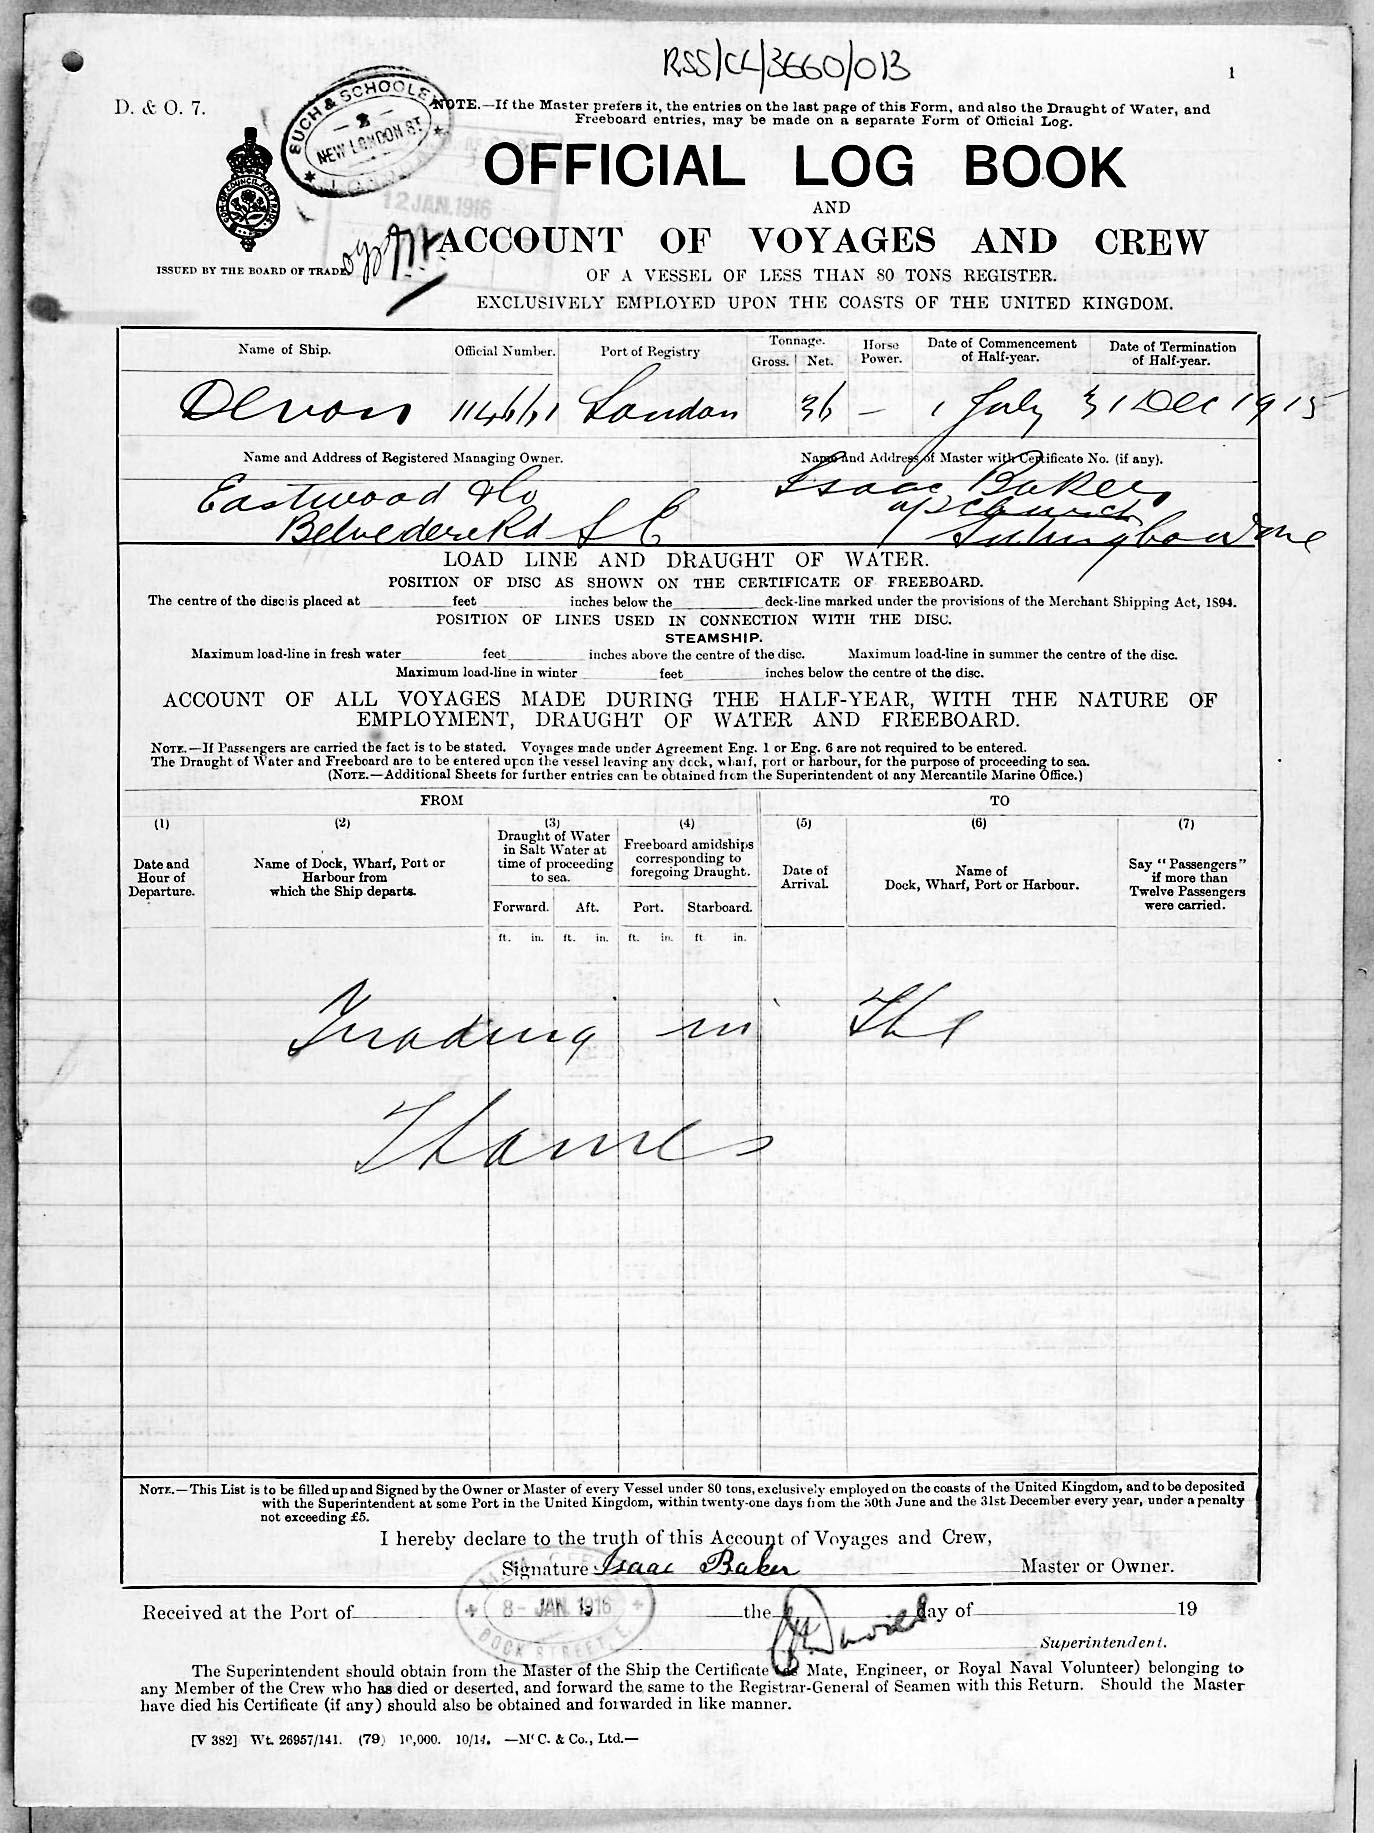 RSS/CL/3660/013
1
D. & O. 7.
SUCH & SCHOOLEY
2
NEW LONDON ST.
12 JAN. 1916
NOTE.—If the Master prefers it, the entries on the last page of this Form, and also the Draught of Water, and
Freeboard entries, may be made on a separate Form of Official Log.
OFFICIAL LOG BOOK
AND
ACCOUNT OF VOYAGES AND CREW
ISSUED BY THE BOARD OF TRADE
OF A VESSEL OF LESS THAN 80 TONS REGISTER.
EXCLUSIVELY EMPLOYED UPON THE COASTS OF THE UNITED KINGDOM.
Name of Ship. Official Number. Port of Registry Tonnage. Gross. Net. Horse Power. Date of Commencement of Half-year. Date of Termination of Half-year.
Devon 114661 London 36 — 1 July 31 Dec 1915
Name and Address of Registered Managing Owner. Name and Address of Master with Certificate No. (if any).
Eastwood & Co Isaac Baker
Belvedere Rd S E Upchurch
Sittingbourne
LOAD LINE AND DRAUGHT OF WATER.
POSITION OF DISC AS SHOWN ON THE CERTIFICATE OF FREEBOARD.
The centre of the disc is placed at feet inches below the deck-line marked under the provisions of the Merchant Shipping Act, 1894.
POSITION OF LINES USED IN CONNECTION WITH THE DISC.
STEAMSHIP.
Maximum load-line in fresh water feet inches above the centre of the disc. Maximum load-line in summer the centre of the disc.
Maximum load-line in winter feet inches below the centre of the disc.
ACCOUNT OF ALL VOYAGES MADE DURING THE HALF-YEAR, WITH THE NATURE OF
EMPLOYMENT, DRAUGHT OF WATER AND FREEBOARD.
NOTE.—If Passengers are carried the fact is to be stated. Voyages made under Agreement Eng. 1 or Eng. 6 are not required to be entered.
The Draught of Water and Freeboard are to be entered upon the vessel leaving any dock, wharf, port or harbour, for the purpose of proceeding to sea.
(NOTE.—Additional Sheets for further entries can be obtained from the Superintendent of any Mercantile Marine Office.)
FROM TO
(1) (2) (3) (4) (5) (6) (7)
Date and Hour of Departure. Name of Dock, Wharf, Port or Harbour from which the Ship departs. Draught of Water in Salt Water at time of proceeding to sea. Freeboard amidships corresponding to foregoing Draught. Date of Arrival. Name of Dock, Wharf, Port or Harbour. Say "Passengers" if more than Twelve Passengers were carried.
Forward. Aft. Port. Starboard.
ft. in. ft. in. ft. in. ft in.
Trading in The
Thames
NOTE.—This List is to be filled up and Signed by the Owner or Master of every Vessel under 80 tons, exclusively employed on the coasts of the United Kingdom, and to be deposited
with the Superintendent at some Port in the United Kingdom, within twenty-one days from the 30th June and the 31st December every year, under a penalty
not exceeding £5.
I hereby declare to the truth of this Account of Voyages and Crew,
Signature Isaac Baker Master or Owner.
Received at the Port of the day of 19
8- JAN. 1916
DOCK STREET, E.
Superintendent.
The Superintendent should obtain from the Master of the Ship the Certificate (as Mate, Engineer, or Royal Naval Volunteer) belonging to
any Member of the Crew who has died or deserted, and forward the same to the Registrar-General of Seamen with this Return. Should the Master
have died his Certificate (if any) should also be obtained and forwarded in like manner.
[V 382] Wt. 26957/141. (79) 10,000. 10/14. —McC. & Co., Ltd.—